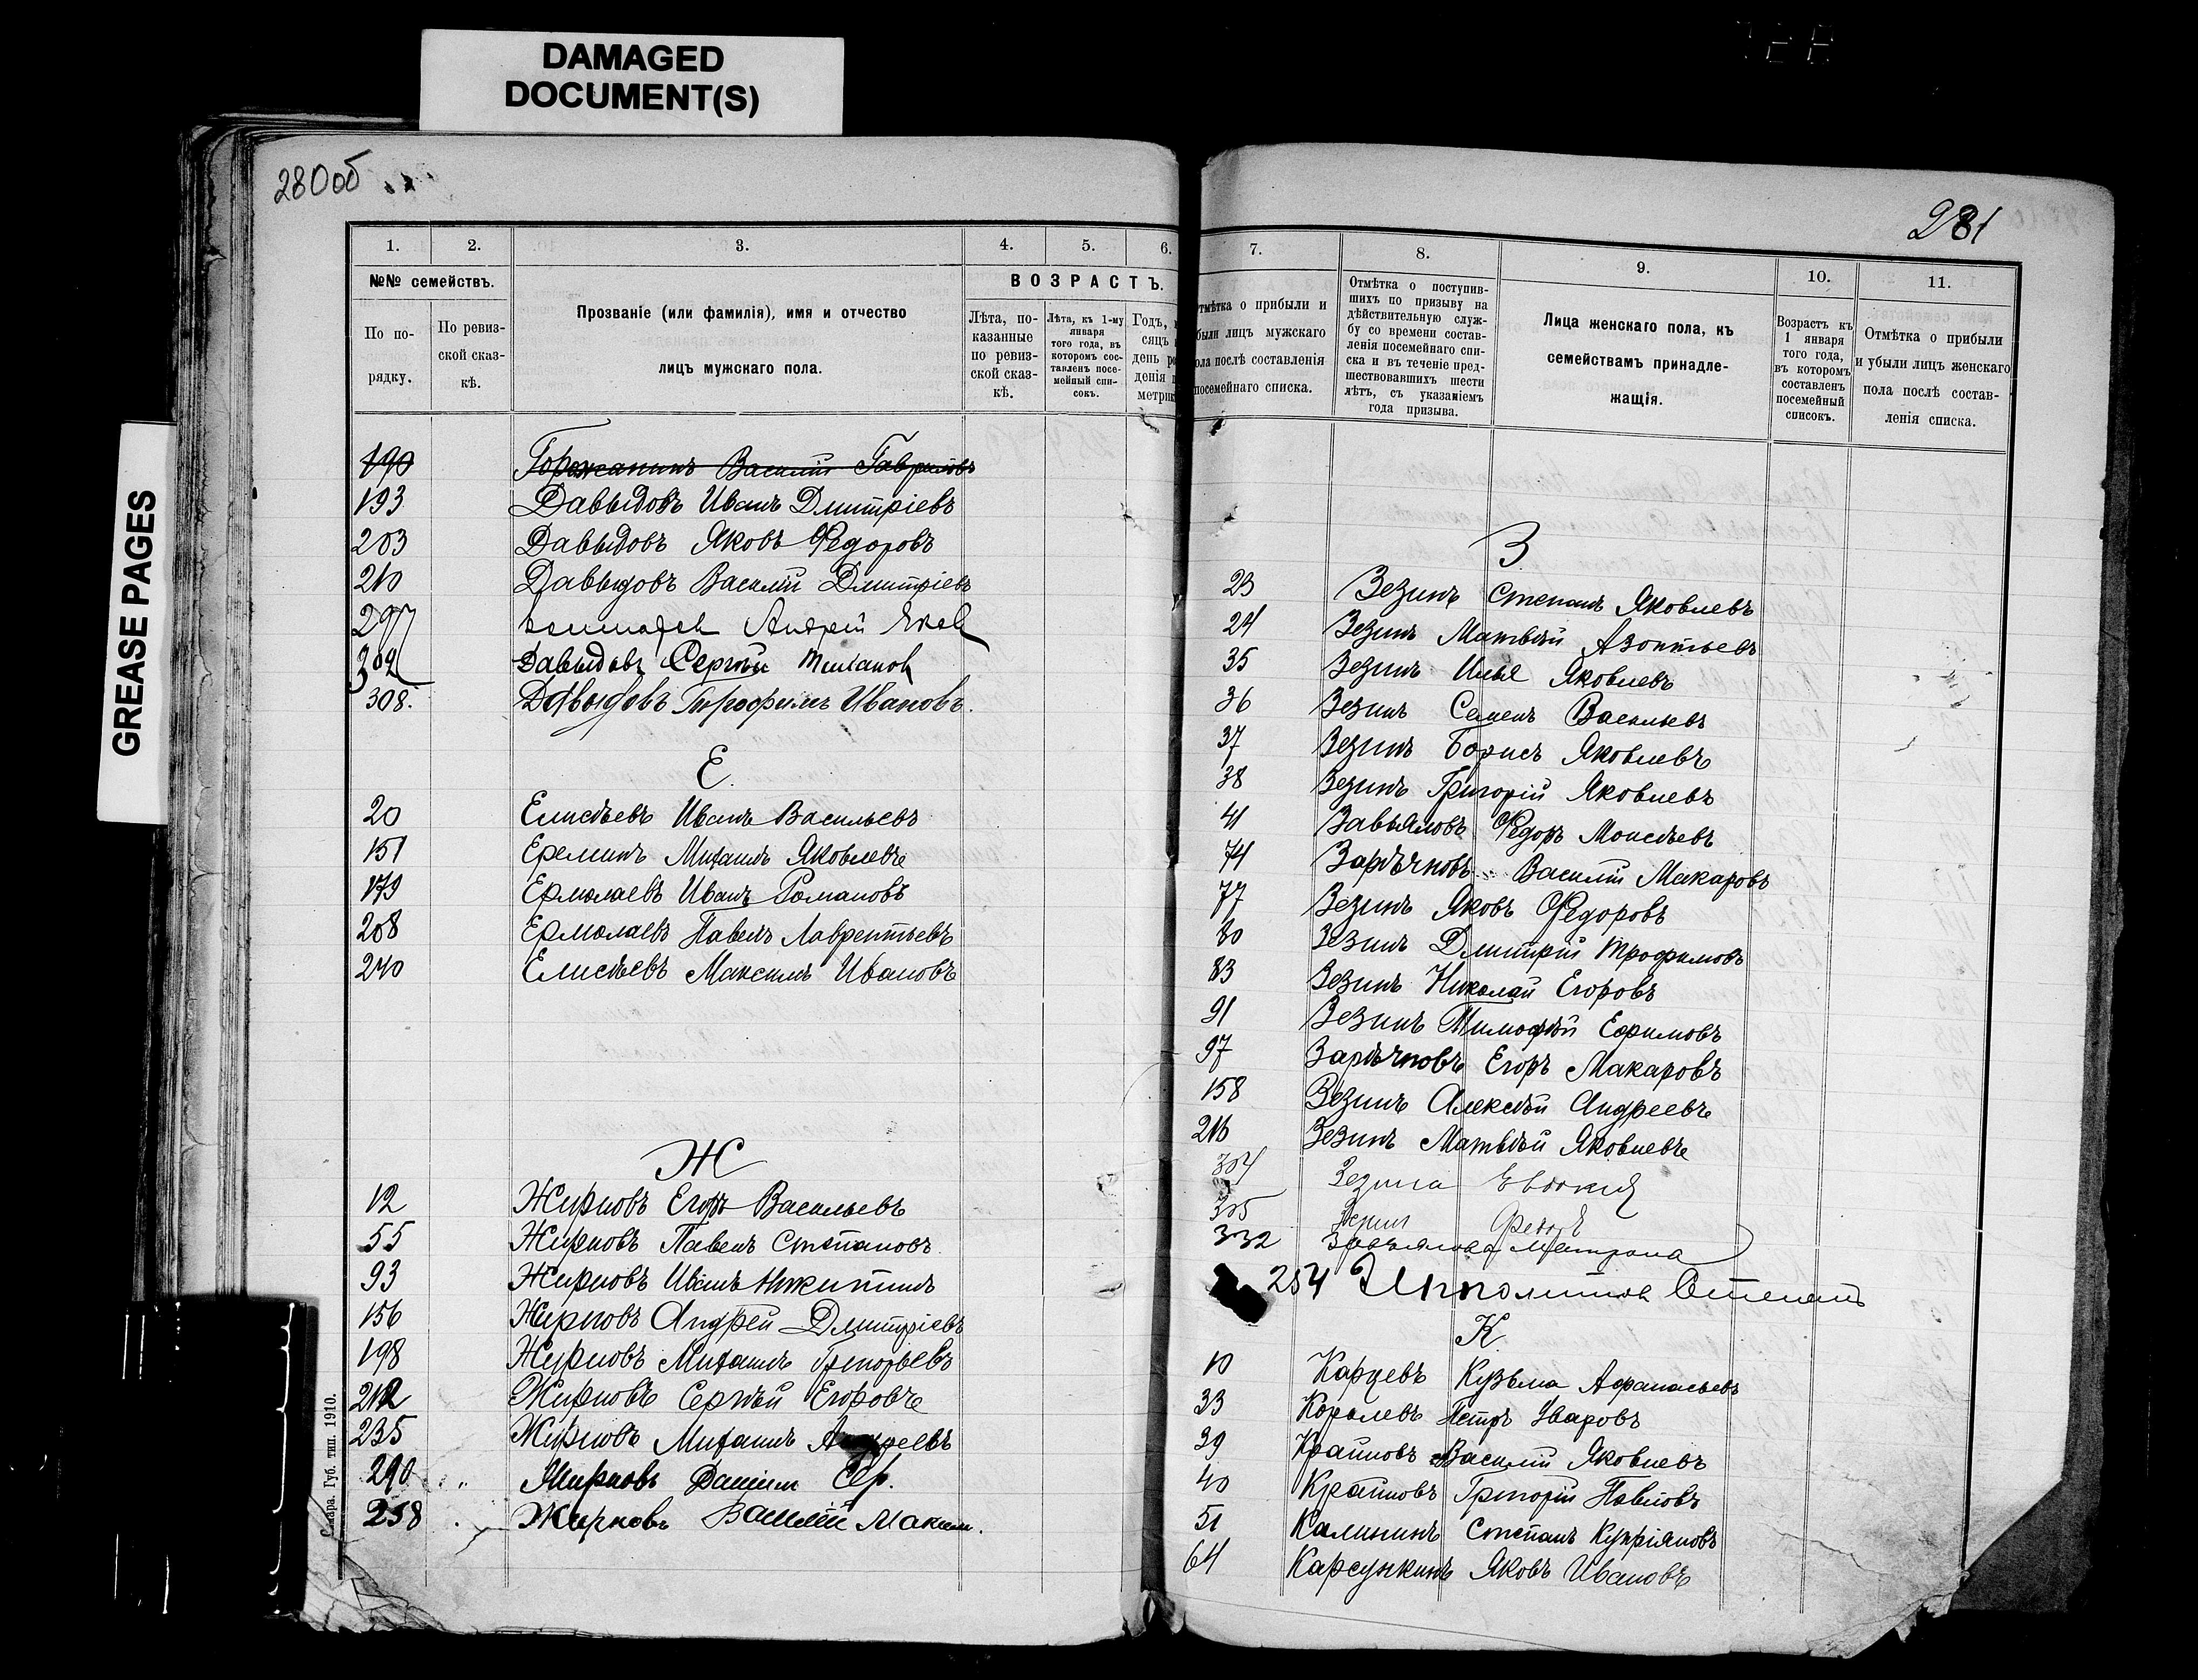 DAMAGED
DOCUMENT(S)
GREASE PAGES
280об
1. 2. 3. 4. 5. 6.
№№ семействъ.
По по-
рядку.
По ревиз-
ской сказ-
кѣ.
Прозваніе (или фамилія), имя и отчество
лицъ мужскаго пола.
ВОЗРАСТЪ.
Лѣта, по-
казанные
по ревиз-
ской сказ-
кѣ.
Лѣта, къ 1-му
января
того года, въ
которомъ сос-
тавленъ посе-
мейный спи-
сокъ.
Годъ,
сяцъ
день ро
денія
метрик
190 Горожанинъ Василій Гавриловъ
193 Давыдовъ Иванъ Дмитріевъ
203 Давыдовъ Яковъ Ѳедоровъ
210 Давыдовъ Василій Дмитріевъ
297 Андрей Яков
302 Давыдовъ Сергѣй Тихонов
308. Давыдовъ Трофимъ Ивановъ.
Е.
20 Елисѣевъ Иванъ Васильевъ
151 Ереминъ Михаилъ Яковлевъ
179 Ермолаевъ Иванъ Романовъ
208 Ермолаевъ Павелъ Лаврентьевъ
240 Елисѣевъ Максимъ Ивановъ
Ж
12 Жирновъ Егоръ Васильевъ
55 Жирновъ Павелъ Степановъ
93 Жирновъ Иванъ Никитинъ
156 Жирновъ Андрей Дмитріевъ
198 Жирновъ Михаилъ Григорьевъ
212 Жирновъ Сергѣй Егоровъ
235 Жирновъ Михаилъ Андреевъ
290 " Жирновъ Даніил Сер.
258 Жирновъ Василій Максим.
Самара. Губ. тип. 1910.
281
7. 8. 9. 10. 11.
тмѣтка о прибыли и
были лицъ мужскаго
ола послѣ составленія
посемейнаго списка.
Отмѣтка о поступив-
шихъ по призыву на
дѣйствительную служ-
бу со времени состав-
ленія посемейнаго спи-
ска и въ теченіе пред-
шествовавшихъ шести
лѣтъ, съ указаніемъ
года призыва.
Лица женскаго пола, къ
семействамъ принадле-
жащія.
Возрастъ къ
1 января
того года,
въ которомъ
составленъ
посемейный
списокъ.
Отмѣтка о прибыли
и убыли лицъ женскаго
пола послѣ состав-
ленія списка.
З
23 Зезинъ Степанъ Яковлевъ
24 Зезинъ Матвѣй
35 Зезинъ Илья Яковлевъ
36 Зезинъ Семенъ Васильевъ
37 Зезинъ Борисъ Яковлевъ
38 Зезинъ Григорій Яковлевъ
41 Завьяловъ Ѳедоръ Моисѣевъ
74 Зарѣчновъ Василій Макаровъ
77 Зезинъ Яковъ Ѳедоровъ
80 Зезинъ Дмитрій Трофимовъ
83 Зезинъ Николай Егоровъ
91 Зезинъ Тимофѣй Ефимовъ
97 Зарѣчновъ Егоръ Макаровъ
158 Зезинъ Алексѣй Андреевъ
216 Зезинъ Матвѣй Яковлевъ
304 Зезина Евдокия
305 Зезин
332 Завьялова Матрона
254 Ипполитов Степанъ
К.
10 Карцевъ Кузьма Афанасьевъ
33 Королевъ Петръ Уваровъ
39 Крайновъ Василій Яковлевъ
40 Крайновъ Григорій Павловъ
51 Калининъ Степанъ Купріяновъ
64 Карсункинъ Яковъ Ивановъ